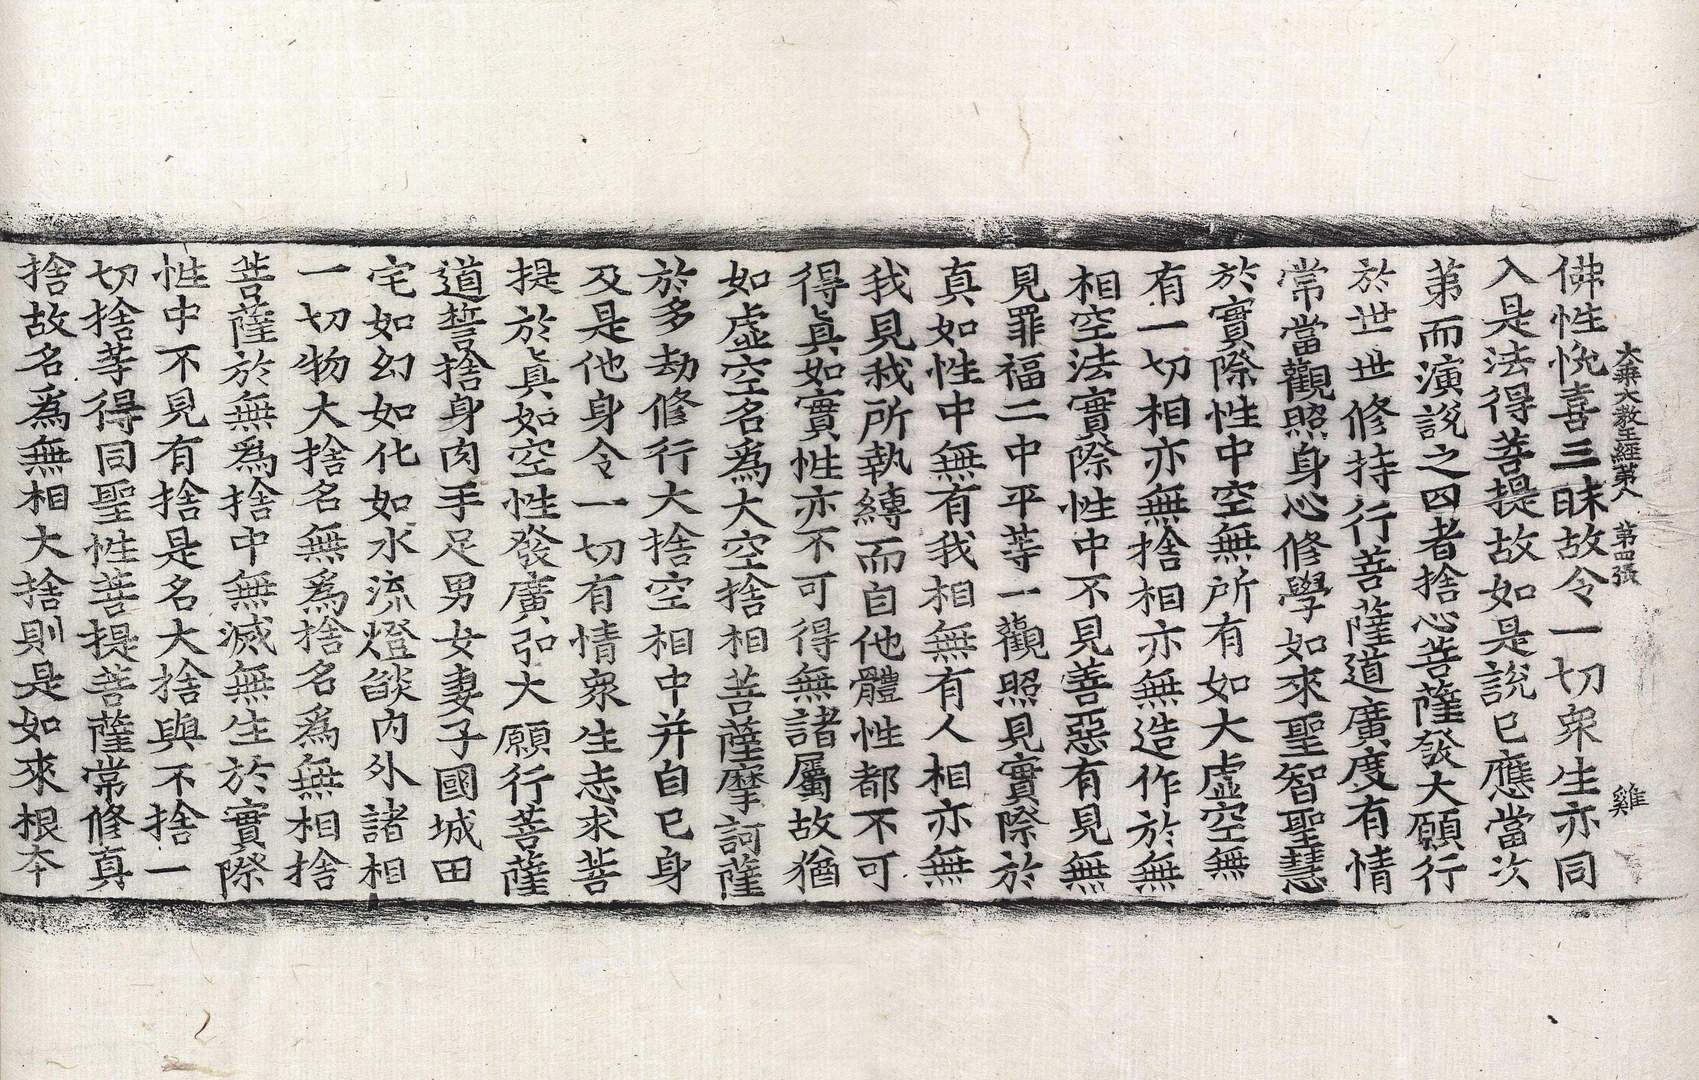 大乘大教王經第八　第四張　雞
佛性悅喜三昧故令一切衆生亦同
入是法得菩提故如是說已應當次
第而演說之四者捨心菩薩發大願行
於世世修持行菩薩道廣度有情
常當觀照身心修學如來聖智聖慧
於實際性中空無所有如大虛空無
有一切相亦無捨相亦無造作於無
相空法實際性中不見善惡有見無
見罪福二中平等一觀照見實際於
真如性中無有我相無有人相亦無
我見我所執縛而自他體性都不可
得真如實性亦不可得無諸屬故猶
如虛空名爲大空捨相菩薩摩訶薩
於多劫修行大捨空相中并自己身
及是他身令一切有情衆生志求菩
提於真如空性發廣弘大願行菩薩
道誓捨身肉手足男女妻子國城田
宅如幻如化如水流燈燄內外諸相
一切物大捨名無爲捨名爲無相捨
菩薩於無爲捨中無滅無生於實際
性中不見有捨是名大捨與不捨一
切捨等得同聖性菩提菩薩常修真
捨故名爲無相大捨則是如來根本